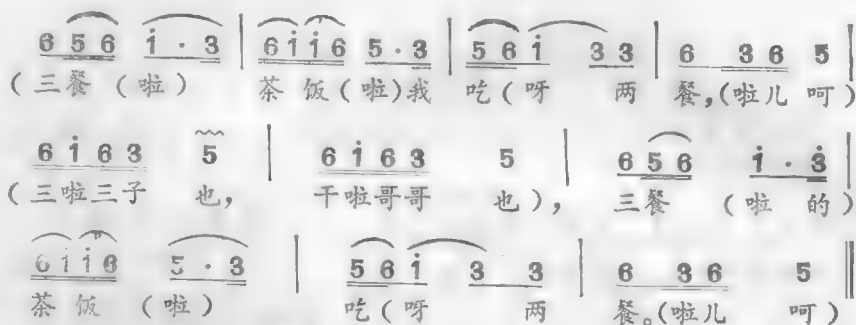 6 5 6 i · 3 | 6 i i 6 5 · 3 | 5 6 i 3 3 | 6 3 6 5 |
(三餐(啦) 茶饭(啦)我 吃(呀 两 餐,(啦儿 呵)
6 i 6 3 5 | 6 i 6 3 5 | 6 5 6 i · 3 |
(三啦三子 也, 干啦哥哥 也), 三餐 (啦 的)
6 i i 6 5 · 3 | 5 6 i 3 3 | 6 3 6 5 ‖
茶饭 (啦) 吃(呀 两 餐。(啦儿 呵)